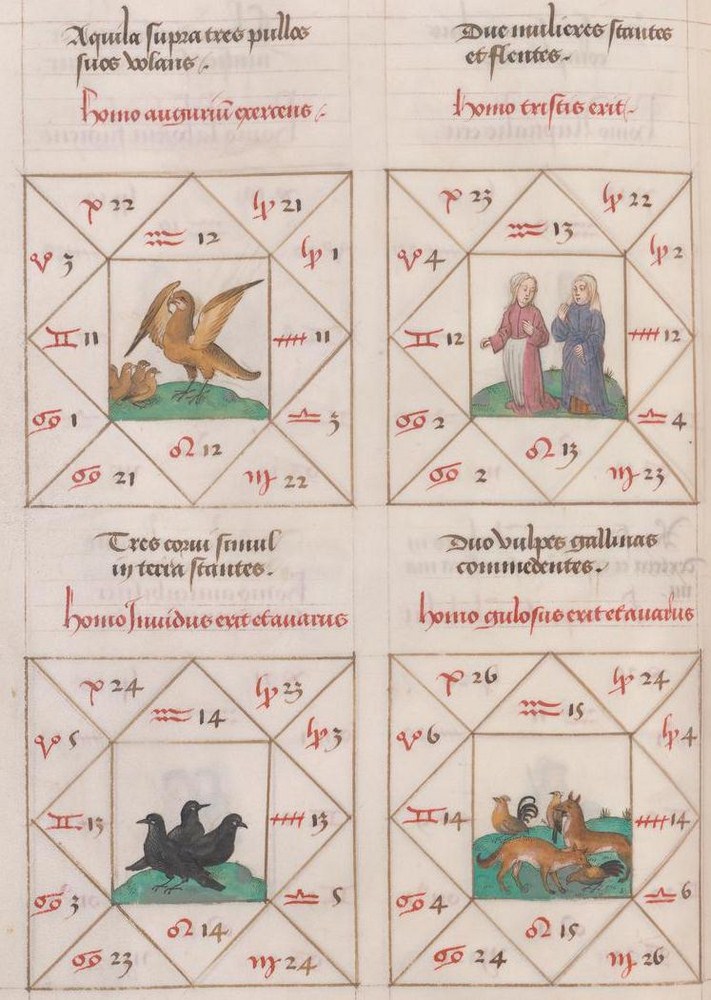 Aquila supra tres pullos
suos volans.
Homo auguriū exercens.
♓ 22
♑ 21
♒ 12
♈ 3
♑ 1
♊ 11
♐ 11
♋ 1
♎ 3
♌ 12
♋ 21
♍ 22
Due mulieres stantes
et flentes.
Homo tristis erit.
♓ 23
♑ 22
♒ 13
♈ 4
♑ 2
♊ 12
♐ 12
♋ 2
♎ 4
♌ 13
♋ 2
♍ 23
Tres corui simul
in terra stantes.
Homo Inuidus erit et auarus
♓ 24
♑ 23
♒ 14
♈ 5
♑ 3
♊ 13
♐ 13
♋ 3
♎ 5
♌ 14
♋ 23
♍ 24
Duo vulpes gallinas
commedentes.
Homo gulosus erit et auarus
♓ 26
♑ 24
♒ 15
♈ 6
♑ 4
♊ 14
♐ 14
♋ 4
♎ 6
♌ 15
♋ 24
♍ 26